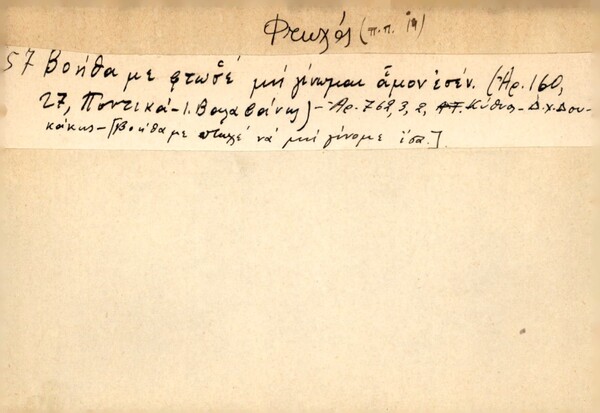 Φτωχός (π.π. 14)
57 Βοήθα με φτωσ̌έ μη γίνωμαι ἅμον ἐσέν. (Ἀρ. 160,
27, Ποντικά - Ι. Βαλαβάνης) - Ἀρ. 768, 3, 2, Κύθνος - Δ.χ. Δου-
κάκης - [Βοήθα με πτωχέ νά μή γίνομε ἴσα.]